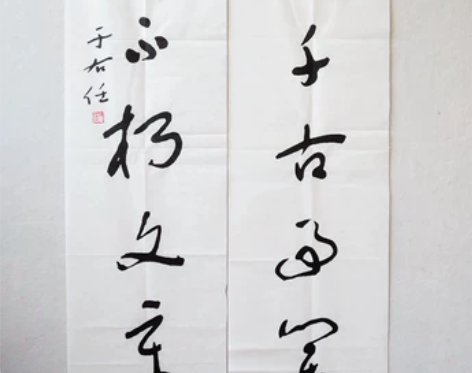 千古事業
不朽文章
于右任